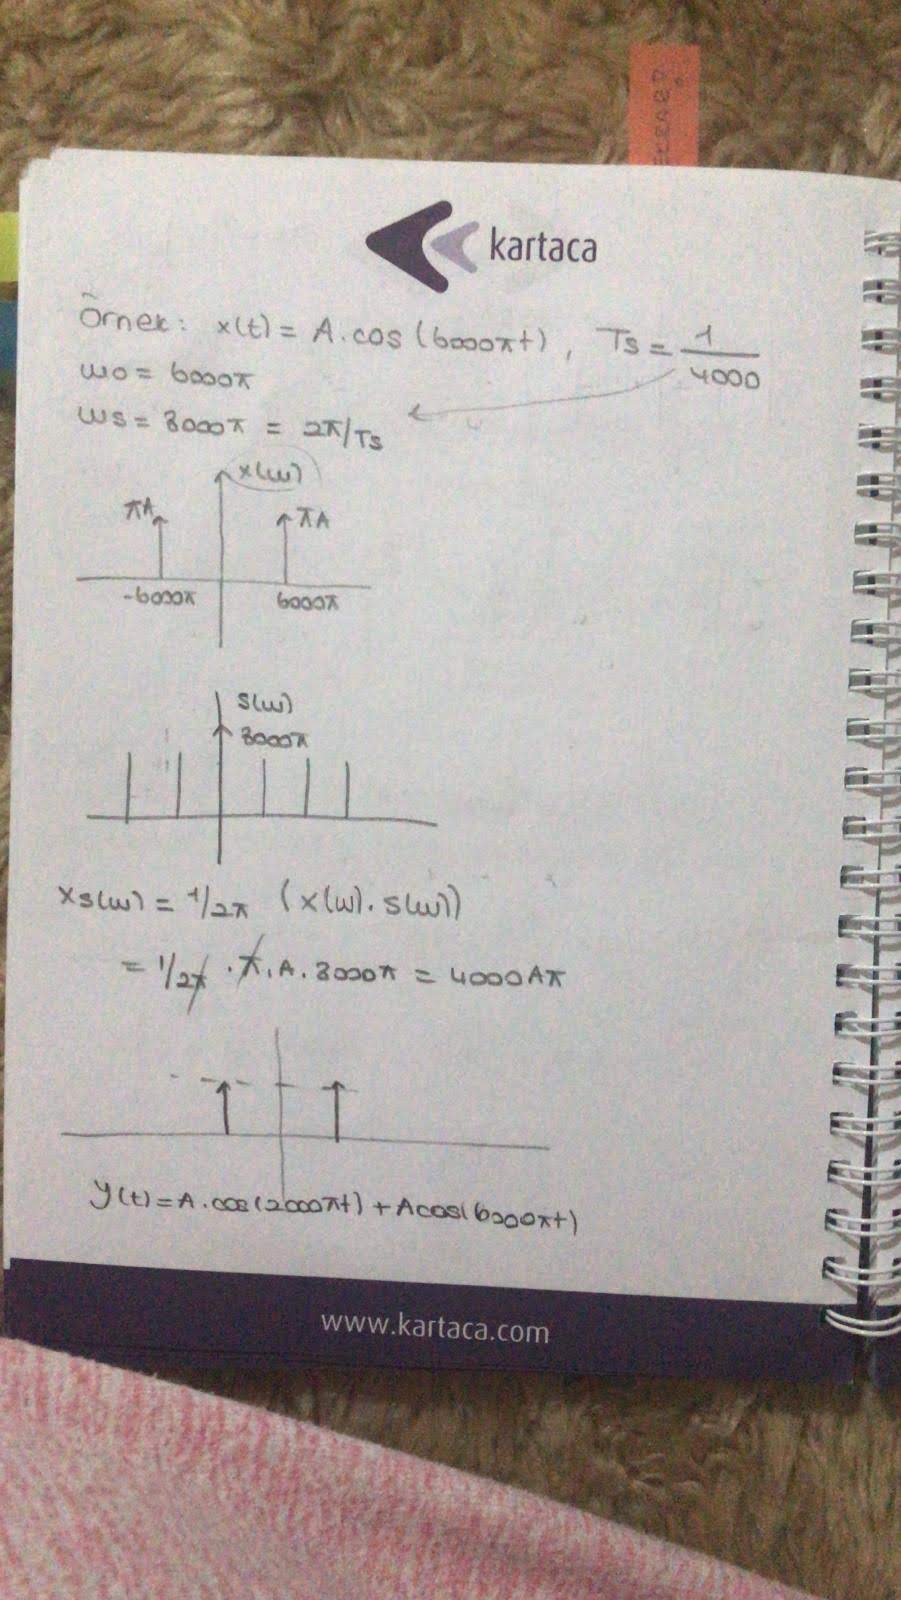 kartaca
Örnek: x(t) = A.cos(6000πt), Ts = 1/4000
wo = 6000π
ws = 8000π = 2π/Ts
x(w)
πA πA
-6000π 6000π
s(w)
8000π
xs(w) = 1/2π (x(w).s(w))
= 1/2π . π.A.8000π = 4000Aπ
y(t) = A.cos(2000πt) + Acos(6000πt)
www.kartaca.com